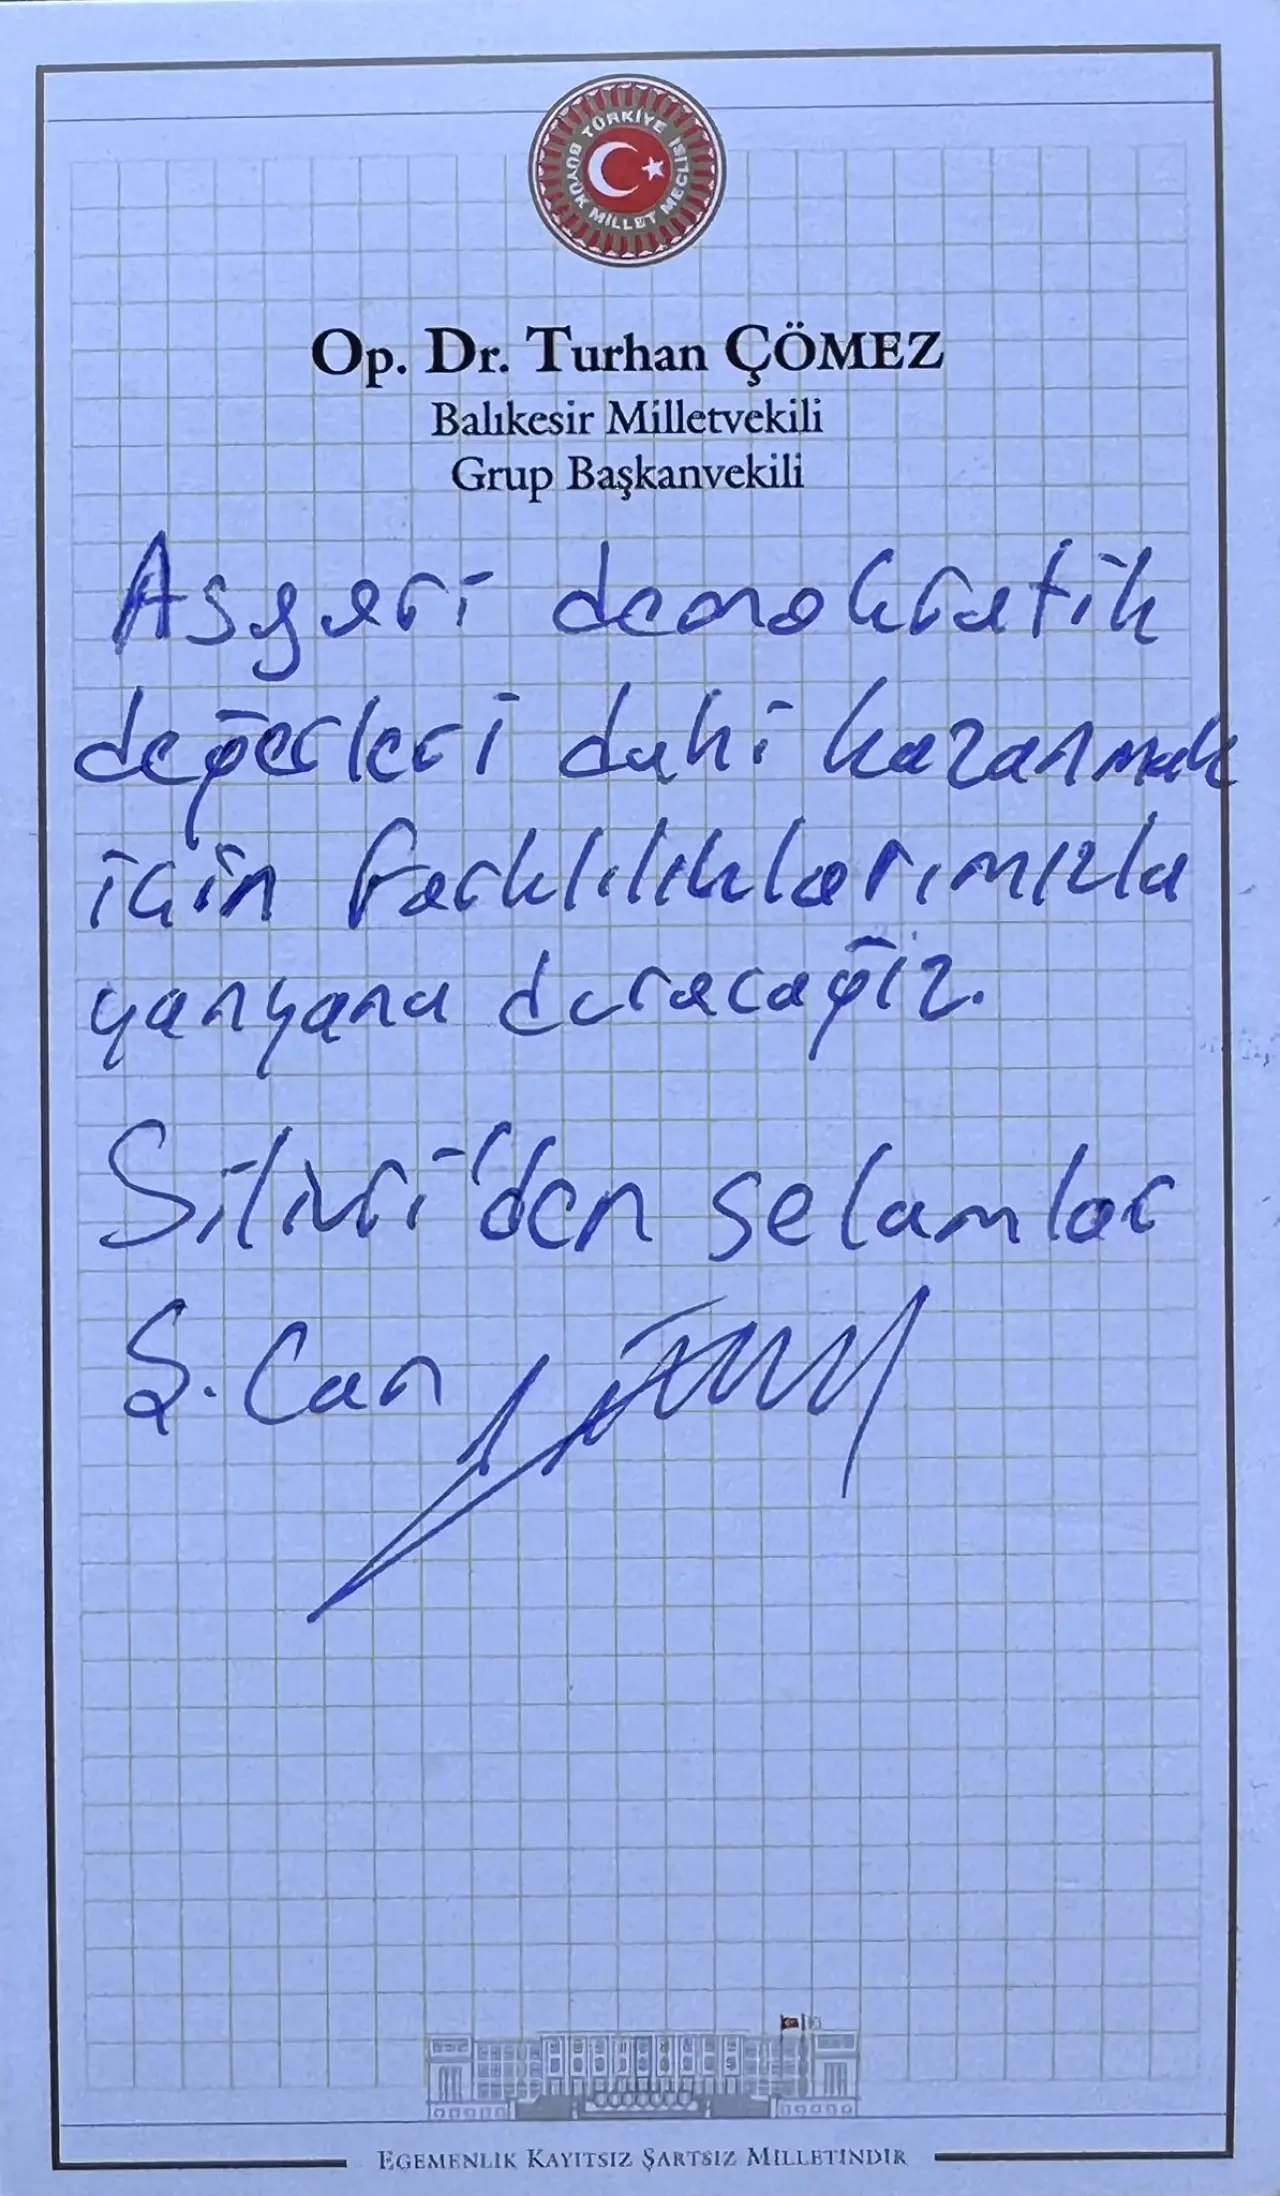 TÜRKİYE BÜYÜK MİLLET MECLİSİ
Op. Dr. Turhan ÇÖMEZ
Balıkesir Milletvekili
Grup Başkanvekili
Asgari demokratik
değerleri dahi kazanmak
için farklılıklarımızla
yanyana duracağız.
Silivri'den selamlar
Ş. Can
EGEMENLİK KAYITSIZ ŞARTSIZ MİLLETİNDİR